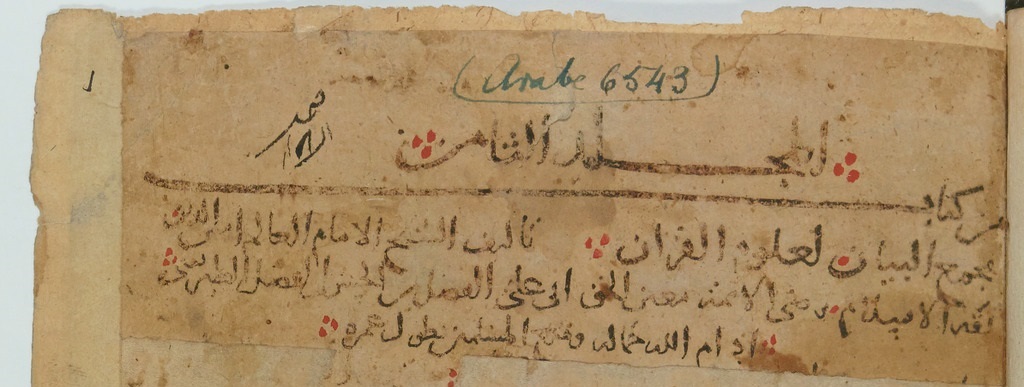 (Arabe 6543)
المجلد الثامن
من كتاب
مجمع البيان لعلوم القران تاليف الشيخ الامام العالم امين الدين
ثقة الاسلام رضى الائمة معين الحق ابى على الفضل بن الحسن بن الفضل الطبرسى
ادام الله جماله ومتع المسلمين بطول عمره